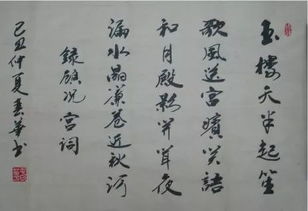 玉樓天半起笙
歌風送宮嬪笑語
和月殿影開聞夜
漏水晶簾卷近秋河
錄顧況宮詞
己丑仲夏華书